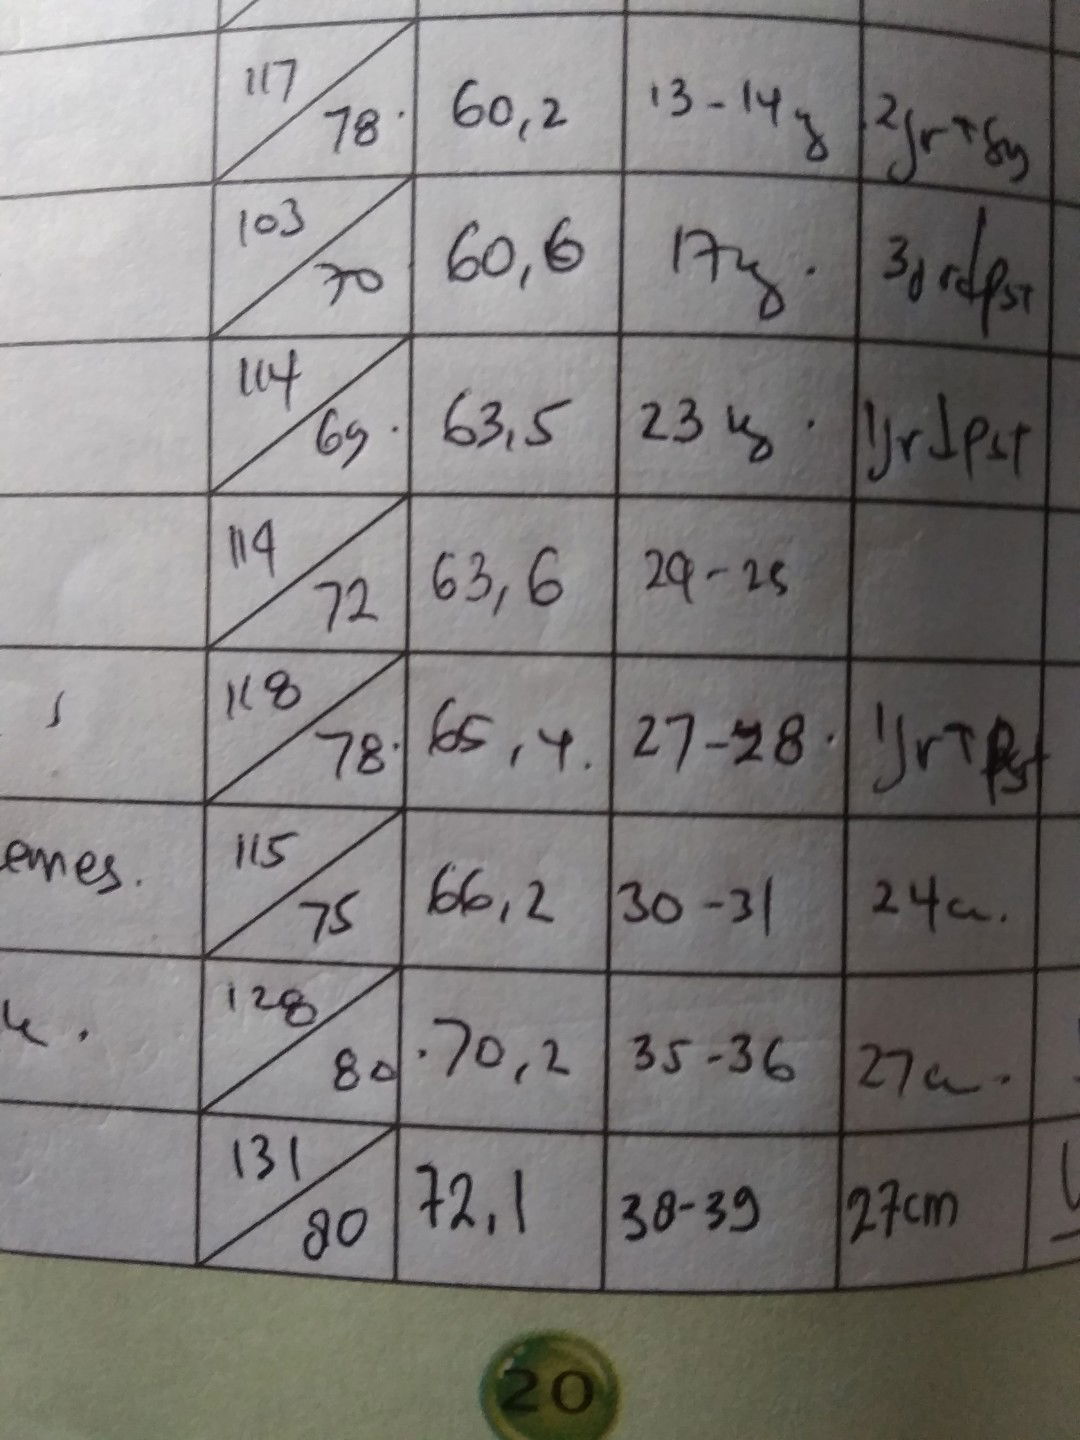 117 / 78. 60,2 13-14 2jr↑
103 / 70 60,6 17 3j
114 / 69. 63,5 23 1jr↓pst
114 / 72 63,6 24-25
118 / 78. 65,4. 27-28. 1jr↑pst
emes. 115 / 75 66,2 30-31 24
128 / 80 70,2 35-36 27
131 / 80 72,1 38-39 27cm
20